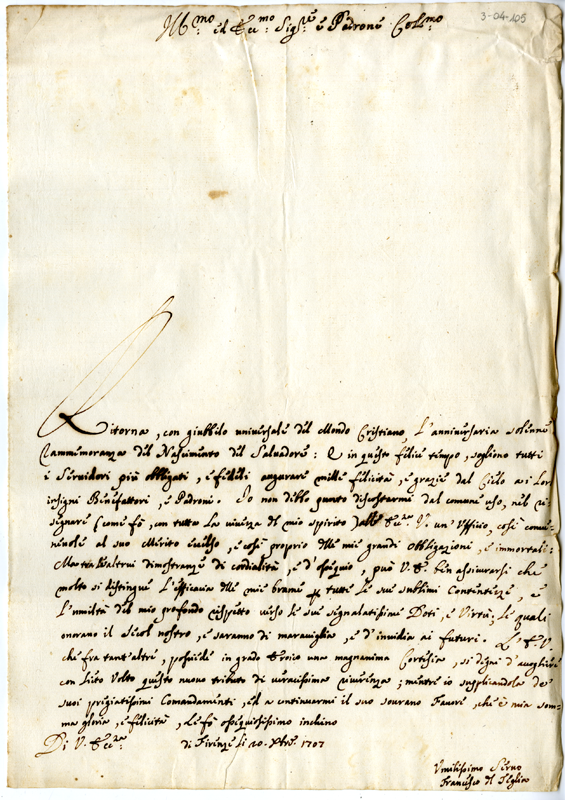 3-04-105
Ill.mo ed Ecc.mo Sig.re e Padrone Col.mo
Ritorna, con giubbilo universale del Mondo Cristiano, l'anniversaria solenne
rammemoranza del Nascimento del Salvadore: E in questo felice tempo, sogliono tutti
i Servidori più obbligati, e fedeli augurare mille felicità, e grazie dal Cielo a i Lor
insigni Benefattori, e Padroni. Io non debbo punto discostarmi dal comune uso, nel
segnare (come fò, con tutto la vivezza del mio spirito) all' Ecc.za V. un' Uffizio, così conve-
nevole al suo Merito eccelso, e così proprio delle mie grandi Obbligazioni, e immortali:
dimostranze di cordialità, e d'ossequio, può V. E. ben assicurarsi che
molto si distingue l'efficacia delle mie brame per tutte le sue sublimi Contentezze, e
l'umiltà del mio profondo rispetto verso le sue segnalatissime Doti, e Virtù, le quali
onorano il Secol nostro, e saranno di maraviglia, e d'invidia ai futuri. L'E. V.
che fra tant'altre, possiede in grado Eroico una magnanima Cortesia, si degni d'accogliere
con lieto Volto questo nuovo tributo di veracissima riverenza; mentre io supplicandola de'
suoi pregiatissimi Comandamenti, ed a continuarmi il suo sovrano Favore, che è mia som-
ma gloria, e felicità, le fò ossequiosissimo inchino
Di V. Ecc.za di Firenze li 20. Xbre. 1707
Umilissimo Servo
Francesco del Teglia